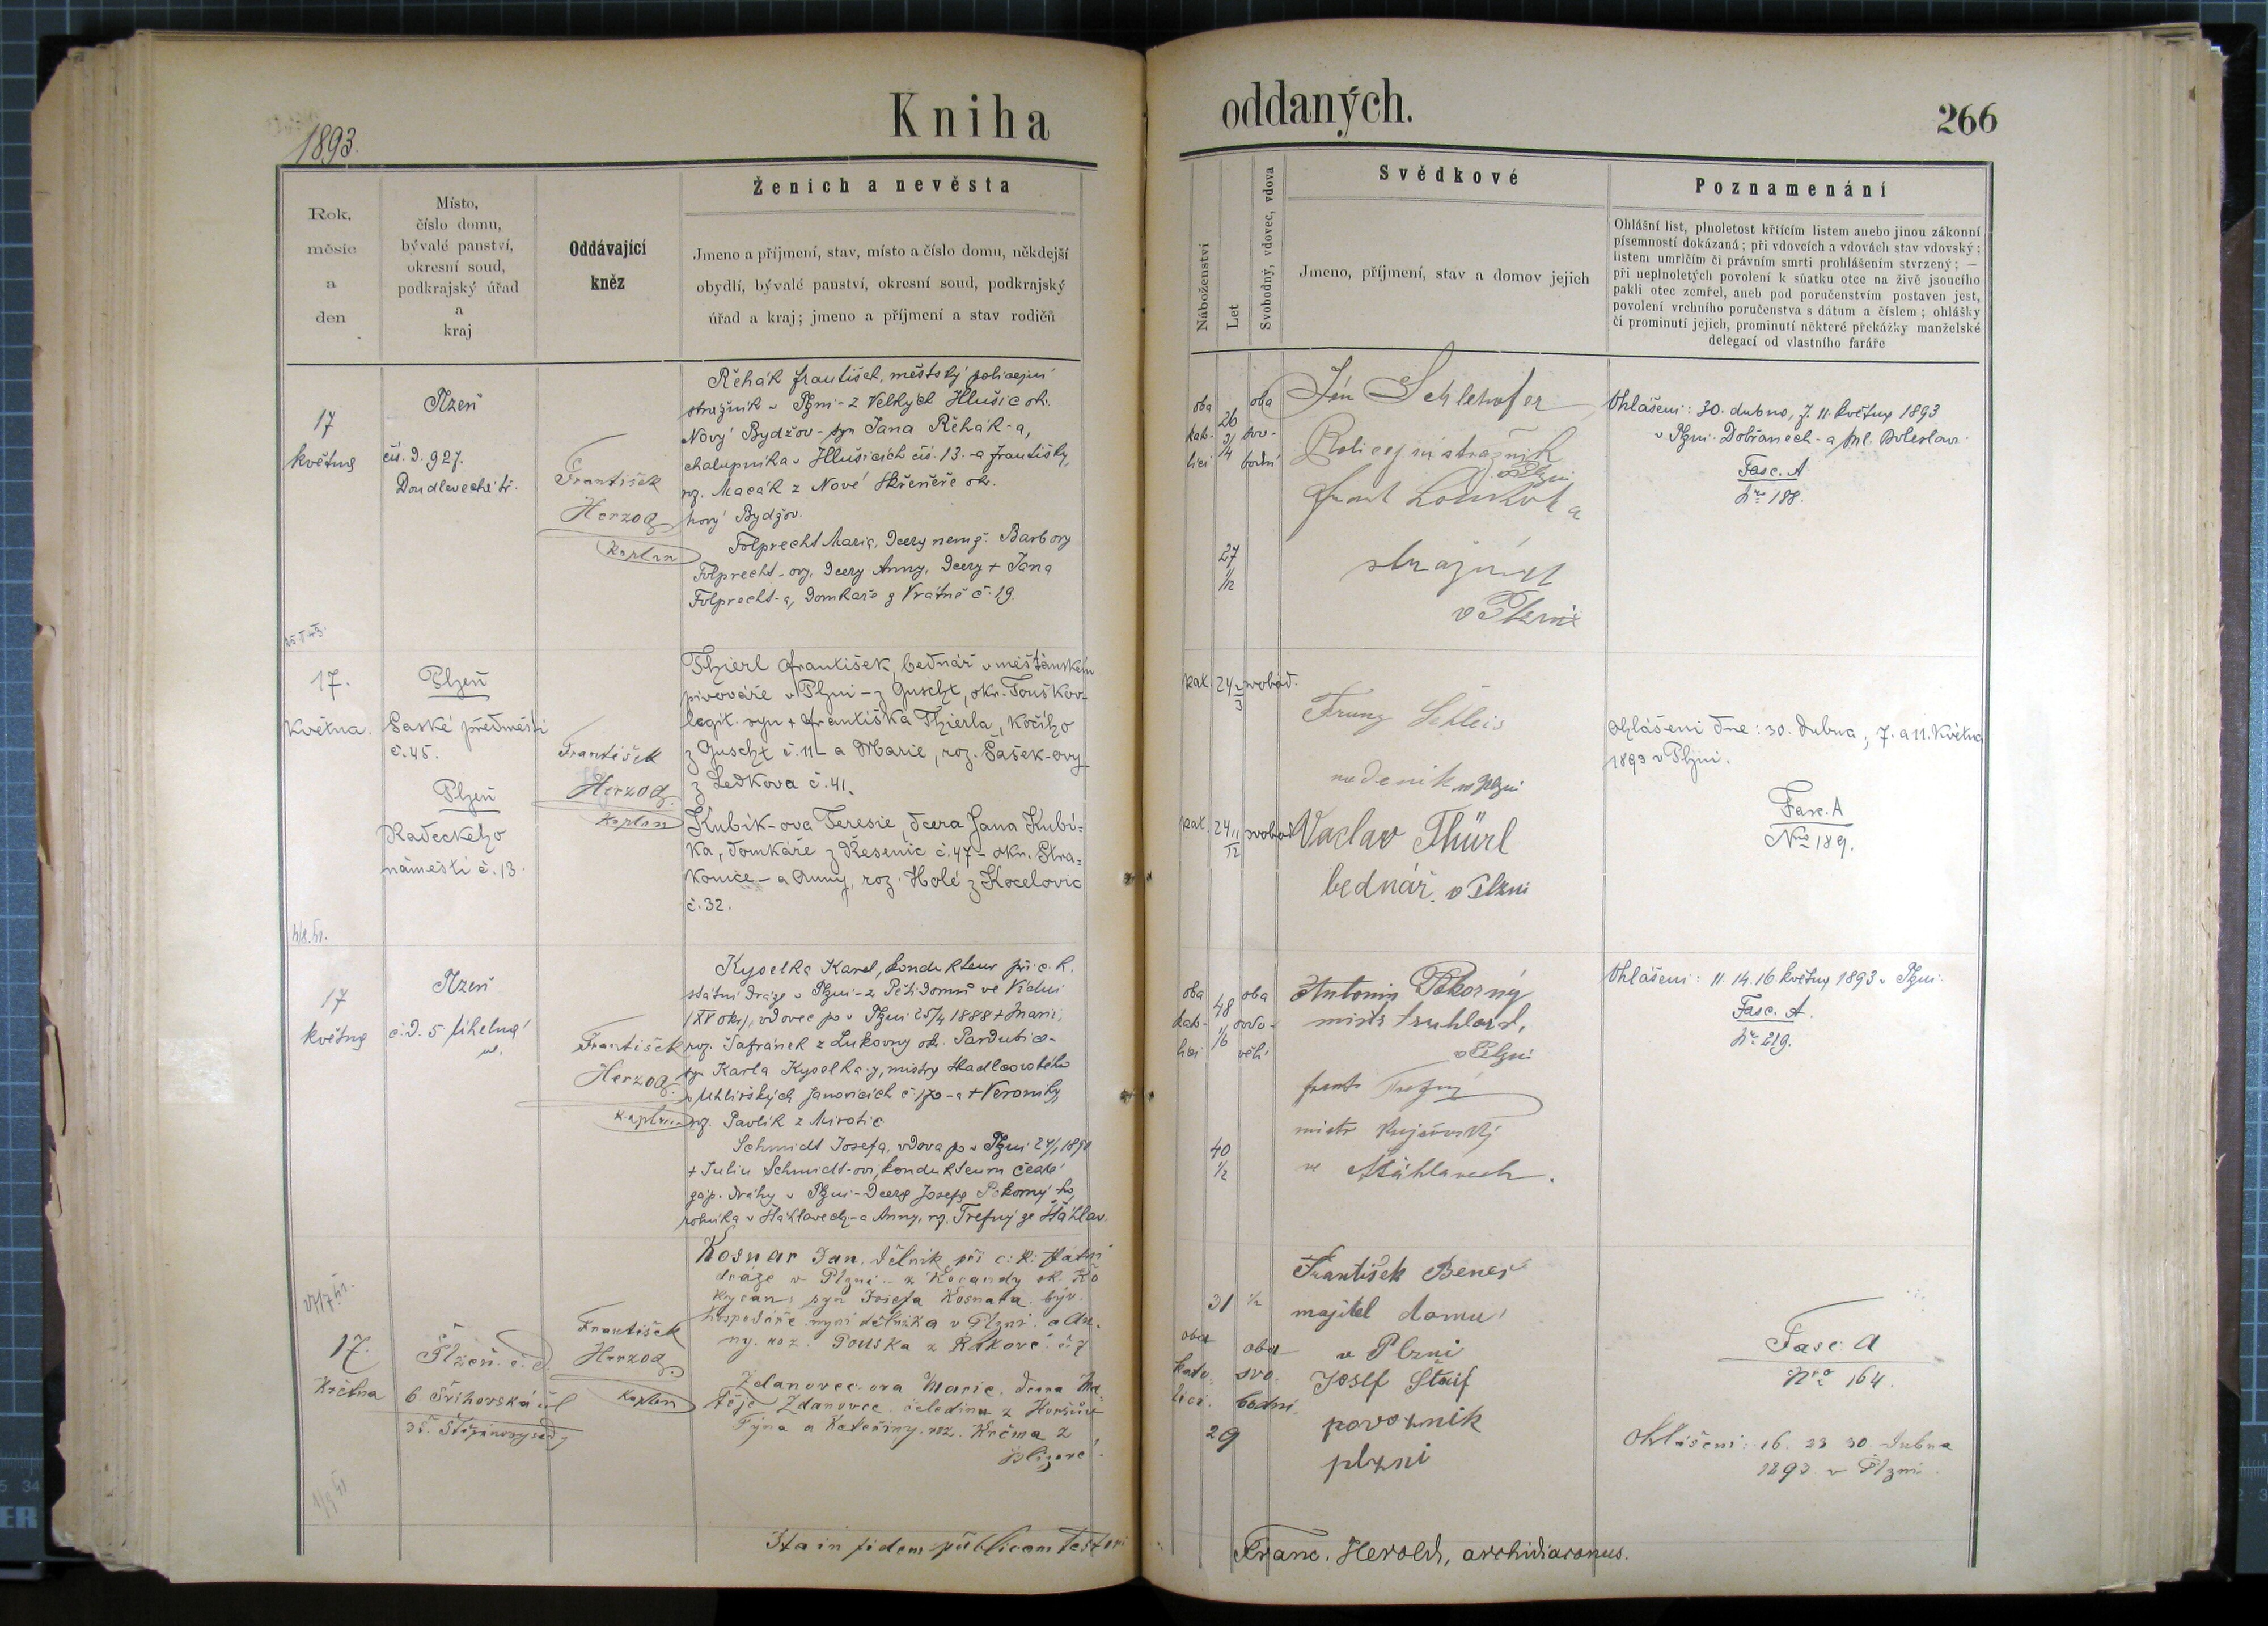 Kniha
oddaných.
266
1893.
Rok,
měsíc
a
den
Místo,
číslo domu,
bývalé panství,
okresní soud,
podkrajský úřad
a
kraj
Oddávající
kněz
Ženich a nevěsta
Jmeno a příjmení, stav, místo a číslo domu, někdejší
obydlí, bývalé panství, okresní soud, podkrajský
úřad a kraj; jmeno a příjmení a stav rodičů
Náboženství
Let
Svobodný, vdovec, vdova
Svědkové
Jmeno, příjmení, stav a domov jejich
Poznamenání
Ohlášní list, plnoletost křticím listem anebo jinou zákonní
písemností dokázaná; při vdovcích a vdovách stav vdovský;
listem umrlčím či právním smrti prohlášením stvrzený; —
při neplnoletých povolení k sňatku otce na živě jsoucího
pakli otec zemřel, aneb pod poručenstvím postaven jest,
povolení vrchního poručenstva s dátum a číslem; ohlášky
či prominutí jejich, prominutí některé překážky manželské
delegací od vlastního faráře
17
května
Plzeň
čís. d. 927.
Doudlevecká tř.
František
Herzog
Kaplan
Řehák František, městský policejní
strážník v Plzni - z Velkých Hlušic ok.
Nový Bydžov - syn Jana Řehák-a,
chalupníka v Hlušicích čís. 13. - a Františky,
roz. Macák z Nové Skřeněře okr.
Nový Bydžov.
Folprecht Marie, dcery nemg. Barbory
Folprecht-ovy, dcery Anny, dcery + Jana
Folprecht-a, domkaře z Vrátně č. 19.
oba
kato-
lici
26
3/4
oba
svo-
bodní
27
1/12
Jan Schlehofer
Policejní strážník
v Plzni
Frant Loukota
strážník
v Plzni
Ohlášeni: 30. dubna, 7. 11. května 1893
v Plzni - Dobřanech - a Ml. Boleslavi
Fasc. A
Nro 188.
17.
Května.
Plzeň
Saské předměstí
č. 45.
Plzeň
Radeckého
náměstí č. 13.
František
Herzog.
Kaplan
Thierl František, bednář v měšťanském
pivováře v Plzni - z Guscht, okr. Touškov -
legit. syn + Františka Thierla, kočího
z Guscht č. 11 - a Marie, roz. Šašek-ovy
z Ledkova č. 41.
Kubík-ova Teresie, dcera Jana Kubí-
ka, domkáře z Řesenic č. 47 - okr. Stra-
konice - a Anny, roz. Holé z Kocelovic
č. 32.
kat. 24 2/3 svobod.
kat. 24 11/12 svobod
Franz Schleis
v Plzni
Vaclav Thürl
bednář v Plzni
Ohlášeni dne: 30. dubna, 7. a 11. Května
1893 v Plzni.
Fasc. A
Nro 189.
17
května
Plzeň
č. d. 5 Uhelná
ul.
František
Herzog.
Kaplan
Kyselka Karel, kondukteur při c. k.
státní dráze v Plzni - z Pětidomů ve Vídni
(XV okr), vdovec po v Plzni 25/4 1888 + Marii,
roz. Šafránek z Lukovny ok. Pardubice -
syn Karla Kyselka-y, mistra
v Uhlířských Janovicích - a + Veroniky,
roz. Pavlík z Mirotic
Schmidt Josefa, vdova po v Plzni 1890
+ Juliu Schmidt-ovi, kondukteuru české
záp. dráhy v Plzni - dcera Josefa Pokorný-ho,
rolníka v Šťáhlavech - a Anny, roz. Trefný ze Šťáhlav.
oba
kato-
lici
48
1/6
oba
ovdo-
vělí
40
1/2
Antonín Pokorný
mistr truhlář,
v Plzni
Frant. Trefný
mistr krejčovský
ve Štáhlavech.
Ohlášeni: 11. 14. 16. května 1893 v Plzni.
Fasc. A.
Nro 219.
17.
Května
Plzeň č. d.
6. Přihovská ul
35. Štěpánovy sady
František
Herzog
Kaplan
Kosnar Jan, dělník při c. k. státní
dráze v Plzni - z Kocandy ok. Ro
kycan, syn Josefa Kosnara, býv.
hospodáře nyní dělníka v Plzni a An-
ny, roz. Pouska z Rakové č. 7
Zdanovec-ova Marie, dcera Ma-
těje Zdanovce čeledína z Horšův
Týna a Kateřiny, roz. Krčma z
31 1/2
oba
kato-
lici.
oba
svo-
bodní.
29
František Beneš
majitel domu
v Plzni
Josef Štaif
povozník
plzni
Fasc. A
Nro 164.
Ohlášeni: 16. 23 30. dubna
1893 v Plzni.
Ita in fidem publicam testor
Franc. Herold, archidiaconus.